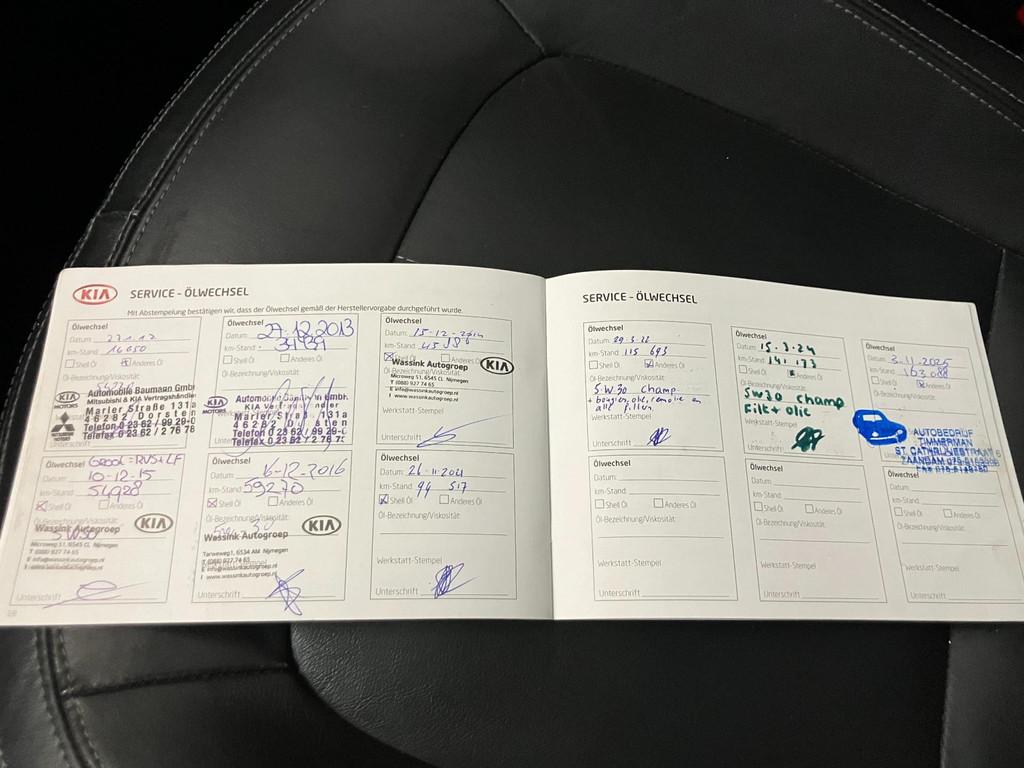 KIA SERVICE - ÖLWECHSEL
Mit Abstempelung bestätigen wir, dass der Ölwechsel gemäß der Herstellervorgabe durchgeführt wurde.
Ölwechsel
Datum:
km-Stand: 16050
Shell Öl Anderes Öl
Öl-Bezeichnung/Viskosität:
Automobile Baumann Gmb
KIA MOTORS
Mitsubishi & KIA Vertragshändler
Marler Straße 131a
46282 Dorsten
Telefon 0 23 62 / 99 29-0
Telefax 0 23 62 / 2 76 78
Ölwechsel
Datum: 27.12.2013
km-Stand:
Shell Öl Anderes Öl
Öl-Bezeichnung/Viskosität:
KIA MOTORS
Marler Straß 131a
46282 Dorsten
Telefon 0 23 62 / 99 29-0
Telefax 0 23 62 / 2 76 78
Ölwechsel
Datum: 15-12-2014
km-Stand:
Shell Öl Anderes Öl
Wassink Autogroep KIA
Microweg 51, 6545 CL Nijmegen
T (088) 927 74 65
E info@wassinkautogroep.nl
I www.wassinkautogroep.nl
Werkstatt-Stempel
Unterschrift
Ölwechsel
Datum: 10-12-15
km-Stand: 54928
Shell Öl Anderes Öl
Öl-Bezeichnung/Viskosität:
KIA
Wassink Autogroep
Microweg 51, 6545 CL Nijmegen
T (088) 927 74 65
E info@wassinkautogroep.nl
I www.wassinkautogroep.nl
Unterschrift
Ölwechsel
Datum: 16-12-2016
km-Stand: 59270
Shell Öl Anderes Öl
Öl-Bezeichnung/Viskosität:
KIA
Wassink Autogroep
Tarweweg 1, 6534 AM Nijmegen
T (088) 927 74 65
E info@wassinkautogroep.nl
I www.wassinkautogroep.nl
Unterschrift
Ölwechsel
Datum: 26-11-2021
km-Stand: 94 517
Shell Öl Anderes Öl
Öl-Bezeichnung/Viskosität:
Werkstatt-Stempel
Unterschrift
SERVICE - ÖLWECHSEL
Ölwechsel
Datum: 29.3.22
km-Stand: 115 693
Shell Öl Anderes Öl
Öl-Bezeichnung/Viskosität:
5W30 champ
+ bougies, olie, remolie en
alle filters
Werkstatt-Stempel
Unterschrift
Ölwechsel
Datum: 15.3.24
km-Stand: 141.173
Shell Öl Anderes Öl
Öl-Bezeichnung/Viskosität:
5W30 champ
Filt + olie
Werkstatt-Stempel
Unterschrift
Ölwechsel
Datum: 3-11-2025
km-Stand: 163088
Shell Öl Anderes Öl
Öl-Bezeichnung/Viskosität:
AUTOBEDRIJF
TIMMERMAN
ST. CATHRIJNESTRAAT 6
Ölwechsel
Datum:
km-Stand:
Shell Öl Anderes Öl
Öl-Bezeichnung/Viskosität:
Werkstatt-Stempel
Unterschrift
Ölwechsel
Datum:
km-Stand:
Shell Öl Anderes Öl
Öl-Bezeichnung/Viskosität:
Werkstatt-Stempel
Unterschrift
Ölwechsel
Datum:
km-Stand:
Shell Öl Anderes Öl
Öl-Bezeichnung/Viskosität:
Werkstatt-Stempel
Unterschrift